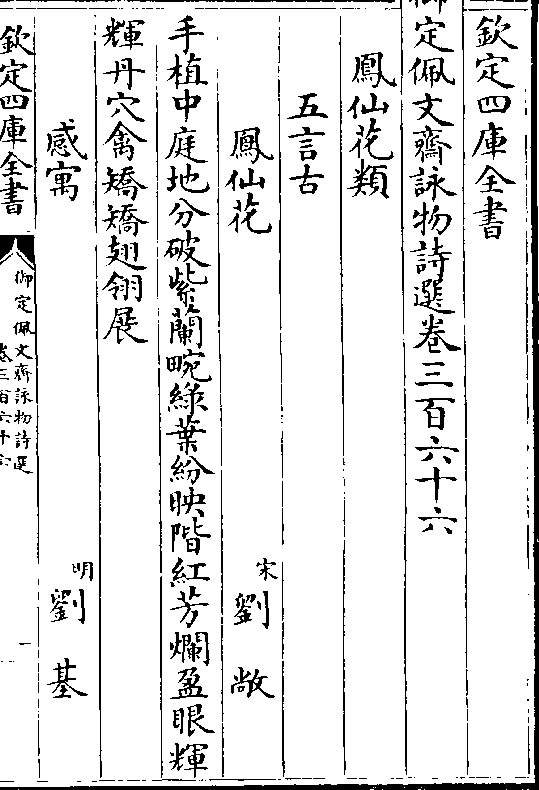 欽定四庫全書
御定佩文齋詠物詩選卷三百六十六
鳳仙花類
五言古
鳳仙花 宋 劉敞
手植中庭地分破紫蘭畹綠葉紛映階紅芳爛盈眼輝
輝丹穴禽矯矯翅翎展
感寓 明 劉基
欽定四庫全書
御定佩文齋詠物詩選
卷三百六十六
一